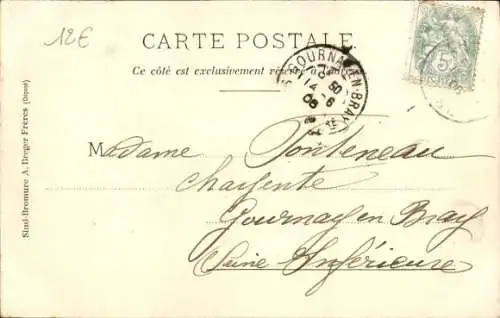 12€
CARTE POSTALE
Ce côté est exclusivement réservé à
GOURNAY-EN-BRAY
14 -6
06
5
Madame Fonteneau
Charpente
Gournay en Bray
Seine-Inférieure
Simil-Bromure A. Berger Frères (Dépost)